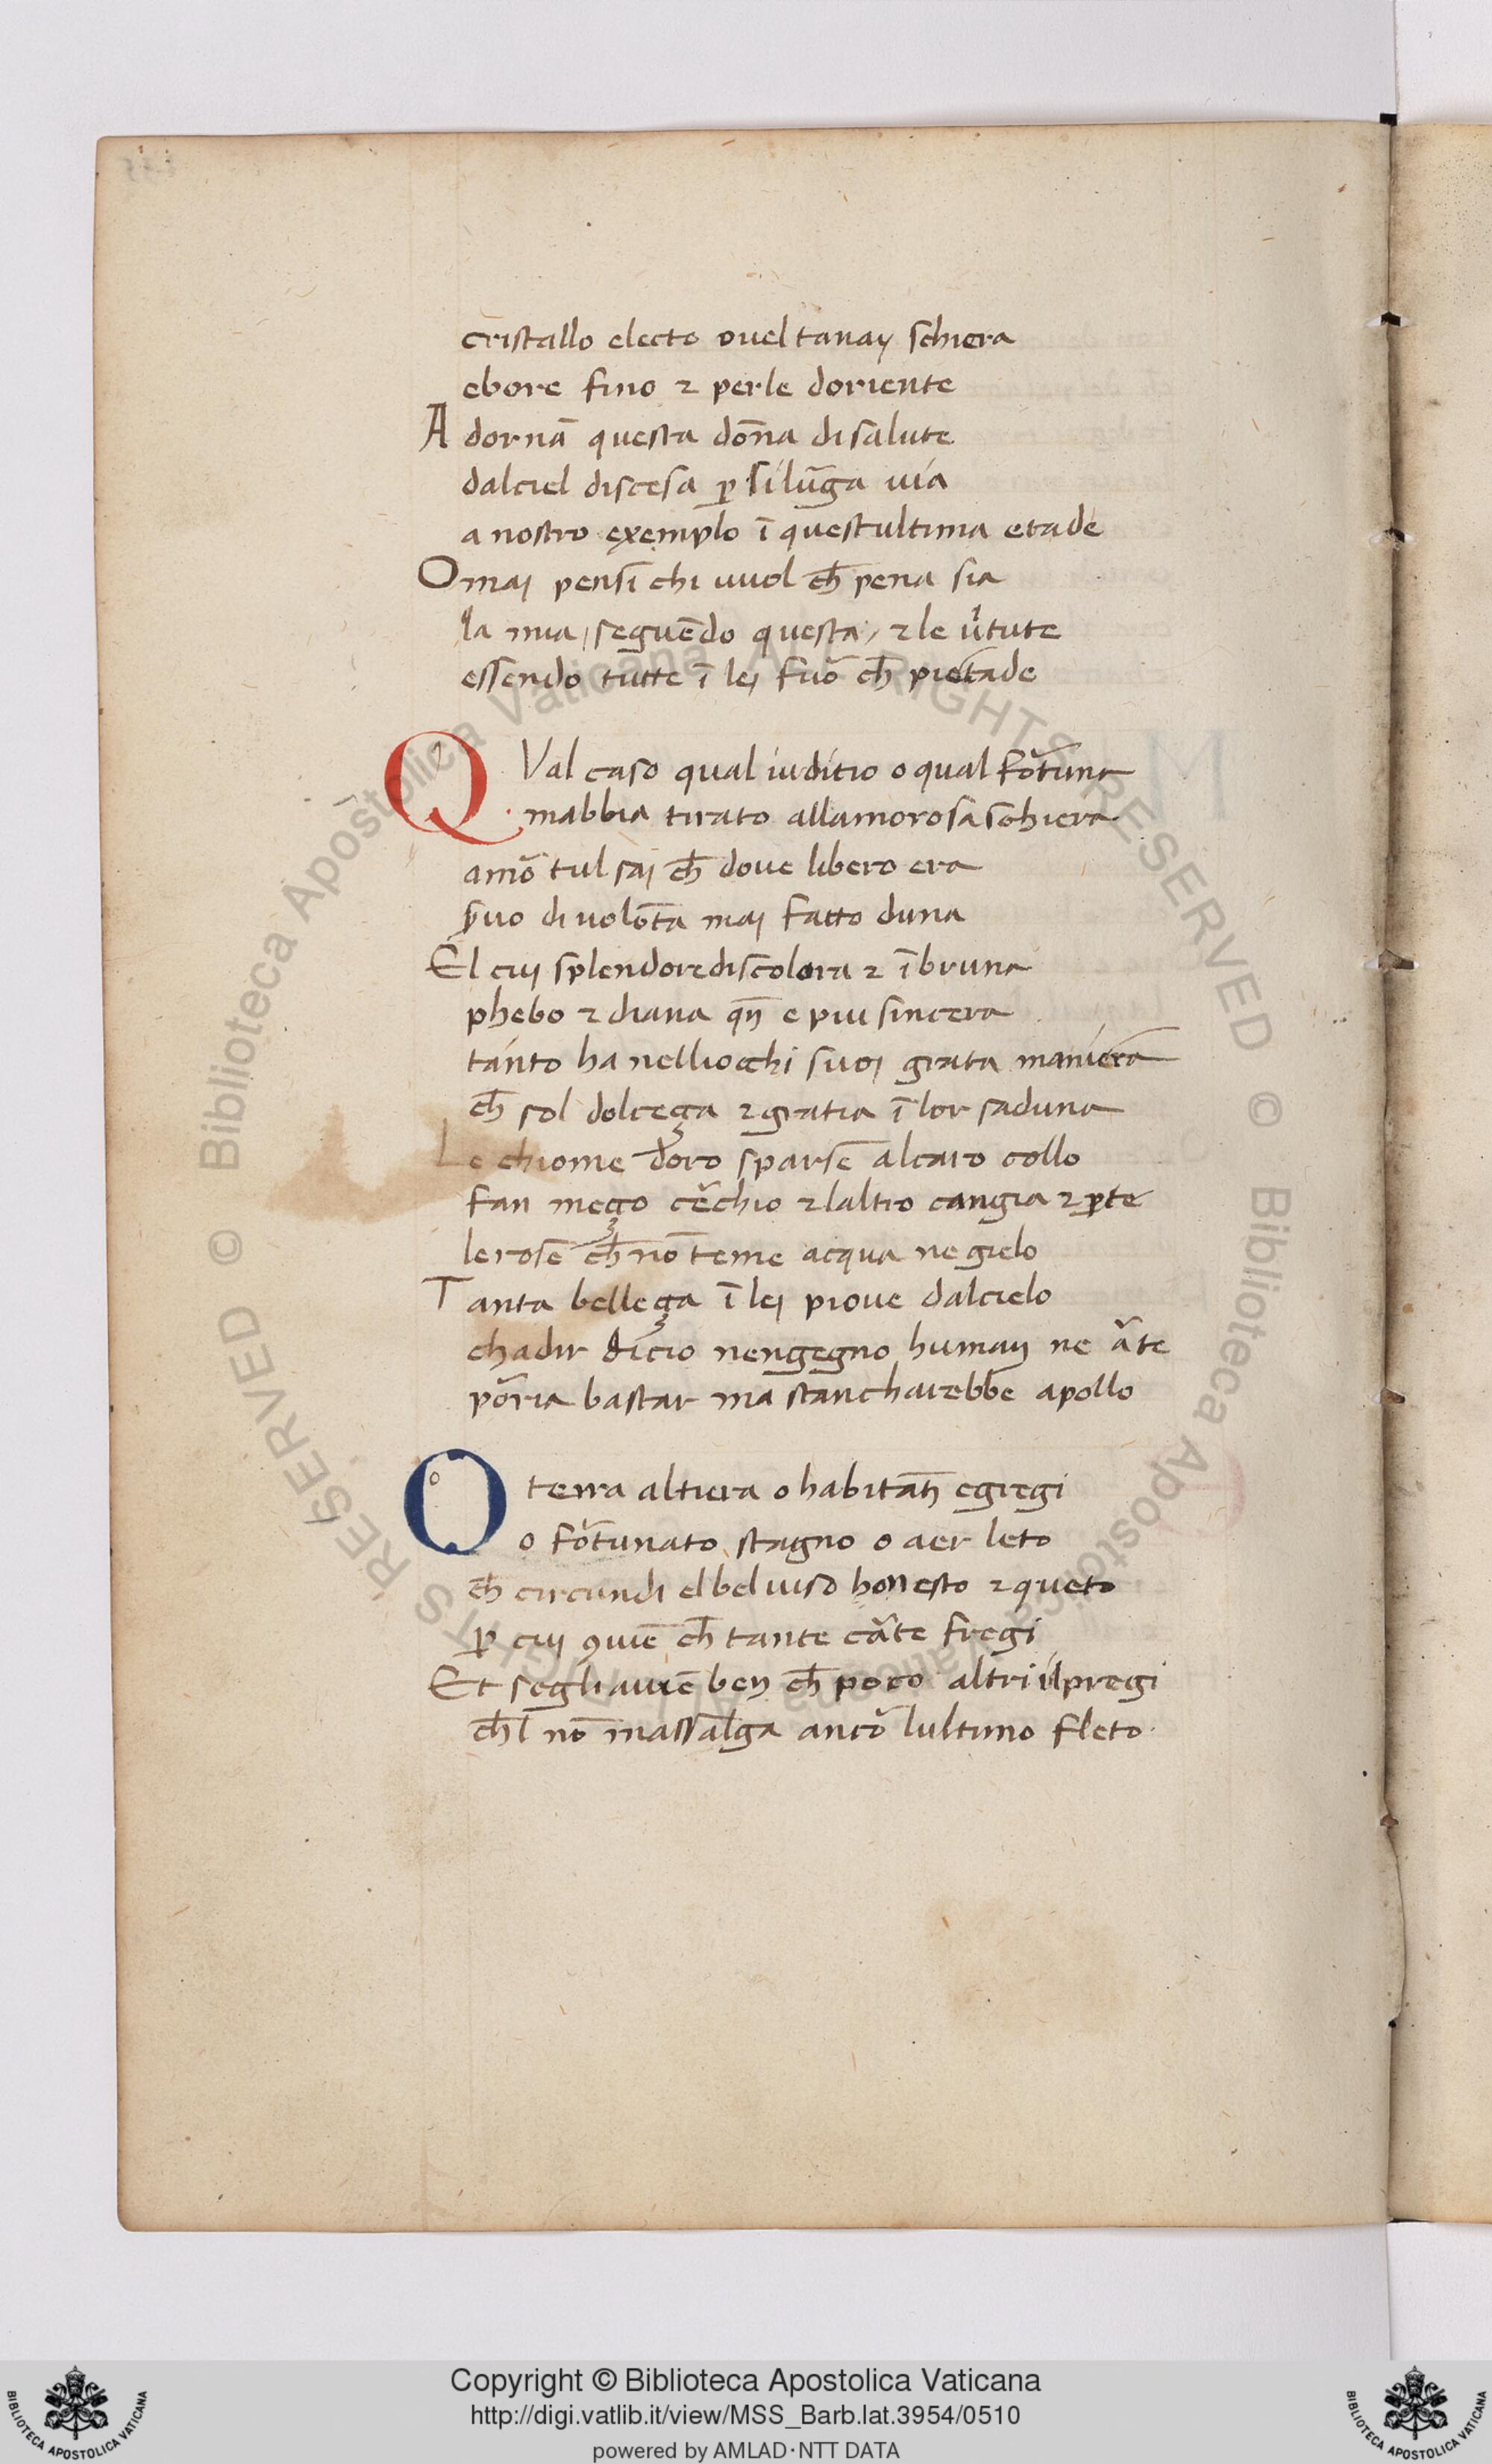 cristallo electo ouel tanay schiera
ebore fino ⁊ perle doriente
A dornā questa dōna di salute
dalciel discesa ꝑ si lūga uia
a nostro exemplo ī questultima etade
Omaj pensi chi uuol ch̄ pena sia
la mia / seguēdo questa / ⁊ le ur̄tute
essendo tutte ī lej fuō ch̄ pietade
QVal caso qual iuditio o qual fōtuna
mabbia tirato allamorosa schiera
amō tul saj ch̄ doue libero era
p̄uo di uolōta maj fatto duna
El cuj splendore discolora ⁊ ībruna
phebo ⁊ diana qn̄ e piu sincera
tanto ha nelliocchi suoj grata maniera
ch̄ sol dolceza ⁊ gratia ī lor saduna
Le chiome doro sparse alcaro collo
fan mezo cēchio ⁊ laltro cangia ⁊ ꝑte
le rose ch̄ nō teme acqua ne gielo
T anta belleza ī lej pioue dalcielo
chadir dicio nengegno human ne āte
pōria bastar ma stancharebbe apollo
O terra altiera o habitātj egregi
o fōtunato stagno o aer leto
ch̄ circundi el bel uiso honesto ⁊ queto
ꝑ cuj ꝯuiē ch̄ tante cāte fregi
Et segli auiē ben ch̄ poco altri il pregi
ch̄l nō massalga ancō lultimo fleto
Copyright © Biblioteca Apostolica Vaticana
http://digi.vatlib.it/view/MSS_Barb.lat.3954/0510
powered by AMLAD·NTT DATA